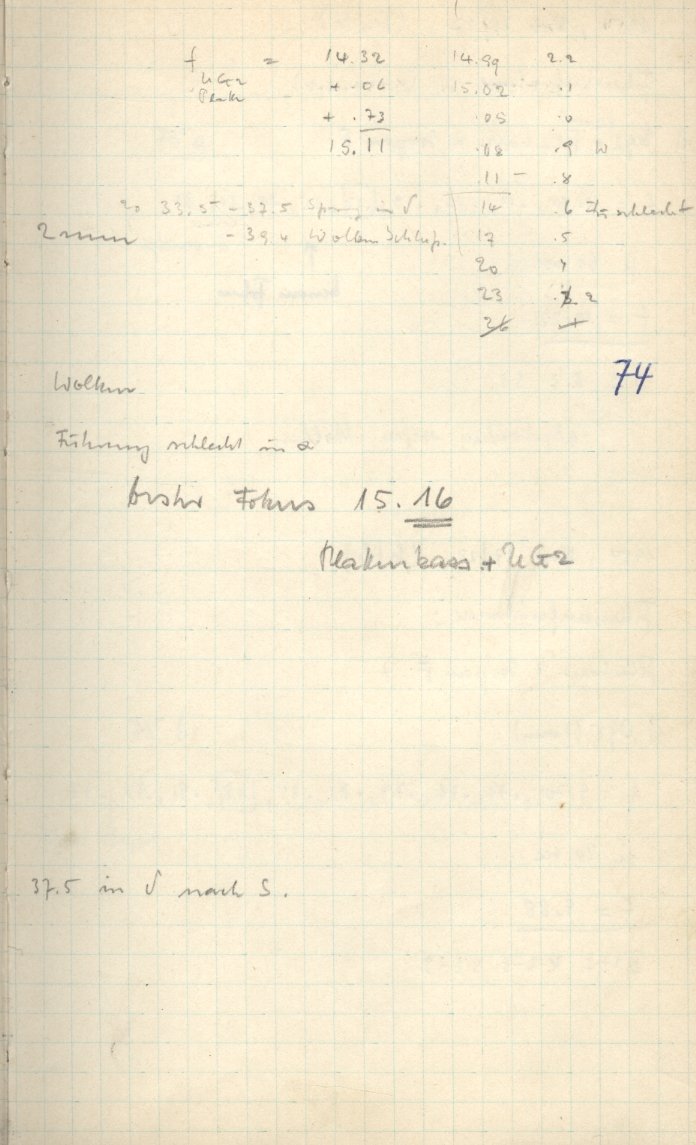 f = 14.32 14.99 2.2
UG2 + .06 15.02 .1
+ .73 .05 .0
15.11 .08 .9 W
.11 - .8
20 33.5 - 37.5 Sprung in δ 14 .6 Fü schlecht
2 mm - 39.4 Wolken Schluß. 17 .5
20
23 2
26
74
Wolken
Führung schlecht in α
bester Fokus 15.16
+ UG2
37.5 in δ nach S.